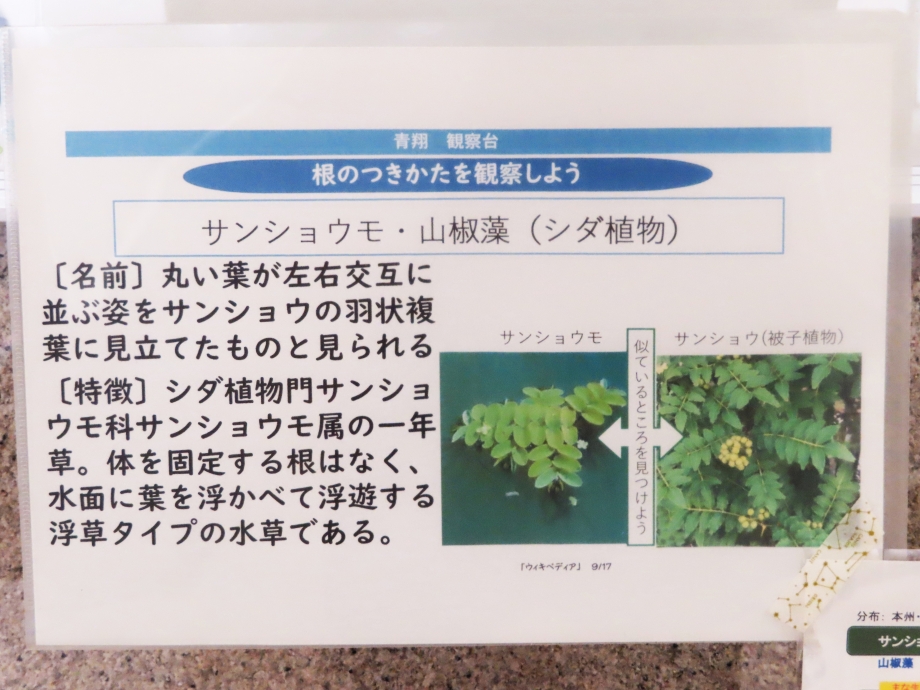 青翔 観察台
根のつきかたを観察しよう
サンショウモ・山椒藻（シダ植物）
〔名前〕丸い葉が左右交互に
並ぶ姿をサンショウの羽状複
葉に見立てたものと見られる
〔特徴〕シダ植物門サンショ
ウモ科サンショウモ属の一年
草。体を固定する根はなく、
水面に葉を浮かべて浮遊する
浮草タイプの水草である。
サンショウモ
似ているところを見つけよう
サンショウ(被子植物)
「ウィキペディア」 9/17
分布: 本州・
サンショ
山椒藻